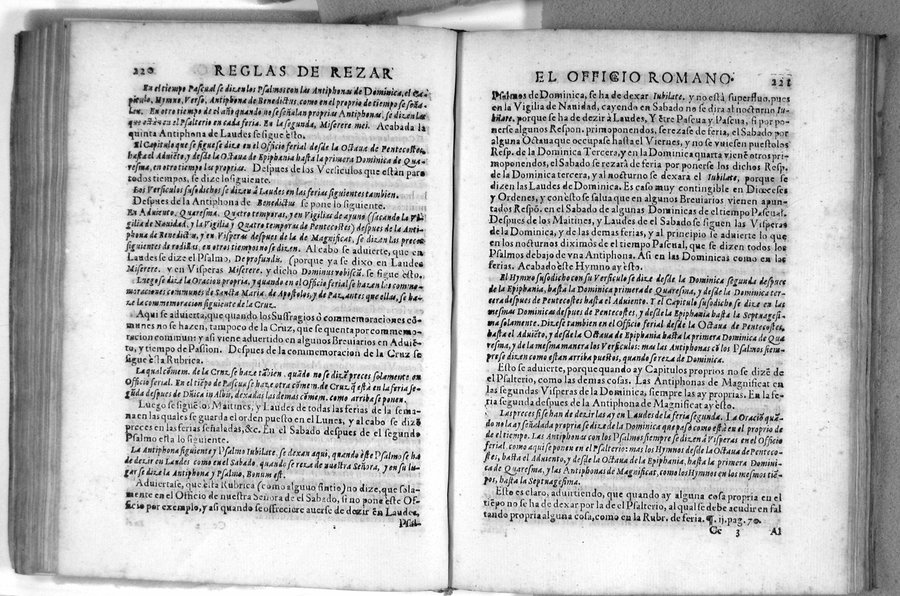 220 REGLAS DE REZAR
En el tiempo Pascual se dizen los Psalmos con las Antiphonas de Dominica, el Ca-
pitulo, Hymno, Verso, Antiphona de Benedictus, como en el proprio de tiempo se seña-
lan. En otro tiempo de el año quando no se señalan proprias Antiphonas, se dizen las
que están en el Psalterio en cada feria. En la segunda, Miserere mei. Acabada la
quinta Antiphona de Laudes se sigue èsto.
El Capitulo que se sigue se dize en el Officio ferial desde la Octaua de Pentecostes,
hasta el Aduiẽto, y desde la Octaua de Epiphania hasta la primera Dominica de Qua-
resma, en otro tiempo los proprios. Despues de los Versiculos que están para
todos tiempos, se dize lo siguiente.
Los Versiculos susodichos se dizen à Laudes en las ferias siguientes tambien.
Despues de la Antiphona de Benedictus se pone lo siguiente.
En Aduento, Quaresma, Quatro temporas, y en Vigilias de ayuno (sacando la Vi-
gilia de Nauidad, y la Vigilia y Quatro temporas de Pentecostes) despues de la Anti-
phona de Benedictus, y en Visperas despues de la de Magnificat, se dizen las preces
siguientes de rodillas, en otros tiempos no se dizen. Al cabo se aduierte, que en
Laudes se dize el Psalmo, De profundis, (porque ya se dixo en Laudes
Miserere, y en Visperas Miserere, y dicho Dominus vobiscũ, se sigue èsto.
Luego se dize la Oracion propria, y quando en el Officio ferial se hazen las comme-
moraciones communes de Sancta Maria, de Apostolos, y de Paz, antes que ellas, se ha-
ze la commemoracion siguiente de la Cruz.
Aqui se aduierta, que quando los Suffragios ò commemoraciones cõ-
munes no se hazen, tampoco de la Cruz, que se quenta por commemo-
racion commun: y asi viene aduertido en algunos Breuiarios en Aduiẽ-
to, y tiempo de Passion. Despues de la commemoracion de la Cruz se
sigue èsta Rubrica.
La qual cõmem. de la Cruz se haze tãbien, quãdo no se dizẽ preces solamente en
Officio ferial. En el tiẽpo de Pascua se haze otra cõmem. de Cruz, q̃ està en la feria se-
gũda despues de Dñica in Albis, dexadas las demas cõmem. como arriba se ponen.
Luego se siguẽ los Maitines, y Laudes de todas las ferias de la sema-
na en las quales se guarda el orden puesto en el Lunes, y al cabo se dizẽ
preces en las ferias señaladas, &c. En el Sabado despues de el segundo
Psalmo esta lo siguiente.
La Antiphona siguiente y Psalmo Iubilate, se dexan aqui, quando èste Psalmo se ha
de dezir en Laudes como en el Sabado, quando se reza de nuestra Señora, y en su lu-
gar se dize la Antiphona y Psalmo, Bonum est.
Aduiertase, que èsta Rubrica (como alguno sintio) no dize, que sola-
mente en el Officio de nuestra Señora de el Sabado, si no pone èste Of-
ficio por exemplo, y asi quando se offreciere auerse de dezir en Laudes,
Psal-
EL OFFICIO ROMANO. 221
Psalmos de Dominica, se ha de dexar Iubilate, y no està superfluo, pues
en la Vigilia de Nauidad, cayendo en Sabado no se dira al nocturno Iu-
bilate, porque se ha de dezir à Laudes, Y ẽtre Pascua y Pascua, si por po-
nerse algunos Respon. primoponendos, se rezase de feria, el Sabado por
alguna Octaua que occupase hasta el Viernes, y no se vuiesen puestolos
Resp. de la Dominica Tercera, y en la Dominica quarta vienẽ otros pri-
moponendos, el Sabado se rezarà de feria por ponerse los dichos Resp.
de la Dominica tercera, y al nocturno se dexara el Iubilate, porque se
dizen las Laudes de Dominica. Es caso muy contingible en Dioceses
y Ordenes, y con èsto se salua que en algunos Breuiarios vienen apun-
tados Respõ. en el Sabado de algunas Dominicas de el tiempo Pascual.
Despues de los Maitines, y Laudes de el Sabado se siguen las Visperas
de la Dominica, y de las demas ferias, y al principio se aduierte lo que
en los nocturnos diximos de el tiempo Pascual, que se dizen todos los
Psalmos debajo de vna Antiphona. Asi en las Dominicas como en las
ferias. Acabado èste Hymno ay èsto.
El Hymno susodicho con su Versiculo se dize desde la Dominica segunda despues
de la Epiphania, hasta la Dominica primera de Quaresma, y desde la Dominica ter-
cera despues de Pentecostes hasta el Aduiento. Y el Capitulo susodicho se dize en las
mesmas Dominicas despues de Pentecostes, y desde la Epiphania hasta la Septuagesi-
ma solamente. Dizese tambien en el Officio ferial desde la Octaua de Pentecostes,
hasta el Aduiẽto, y desde la Octaua de Epiphania hasta la primera Dominica de Qua-
resma, y de la mesma manera los Versiculos: mas las Antiphonas cõ los Psalmos siem-
pre se dizen como estàn arriba puestos, quando se reza de Dominica.
Esto se aduierte, porque quando ay Capitulos proprios no se dizẽ de
el Psalterio, como las demas cosas. Las Antiphonas de Magnificat en
las segundas Visperas de la Dominica, siempre las ay proprias. En la fe-
ria segunda despues de la Antiphona de Magnificat ay èsto.
Las preces si se han de dezir las ay en Laudes de la feria segunda. La Oraciõ quã-
do no la ay señalada propria se dize de la Dominica que pasò como està en el proprio de
de el tiempo. Las Antiphonas con los Psalmos siempre se dizen à Visperas en el Officio
ferial, como aqui se ponen en el Psalterio: mas los Hymnos desde la Octaua de Penteco-
stes, hasta el Aduiento, y desde la Octaua de la Epiphania, hasta la primera Domini-
ca de Quaresma, y las Antiphonas de Magnificat, como los Hymnos en los mesmos tiẽ-
pos, hasta la Septuagesima.
Esto es claro, aduirtiendo, que quando ay alguna cosa propria en el
tiẽpo no se ha de dexar por la de el Psalterio, al qual se debe acudir en fal
tando propria alguna cosa, como en la Rubr. de feria. ¶. ij. pag. 70.
Cc 3 Al